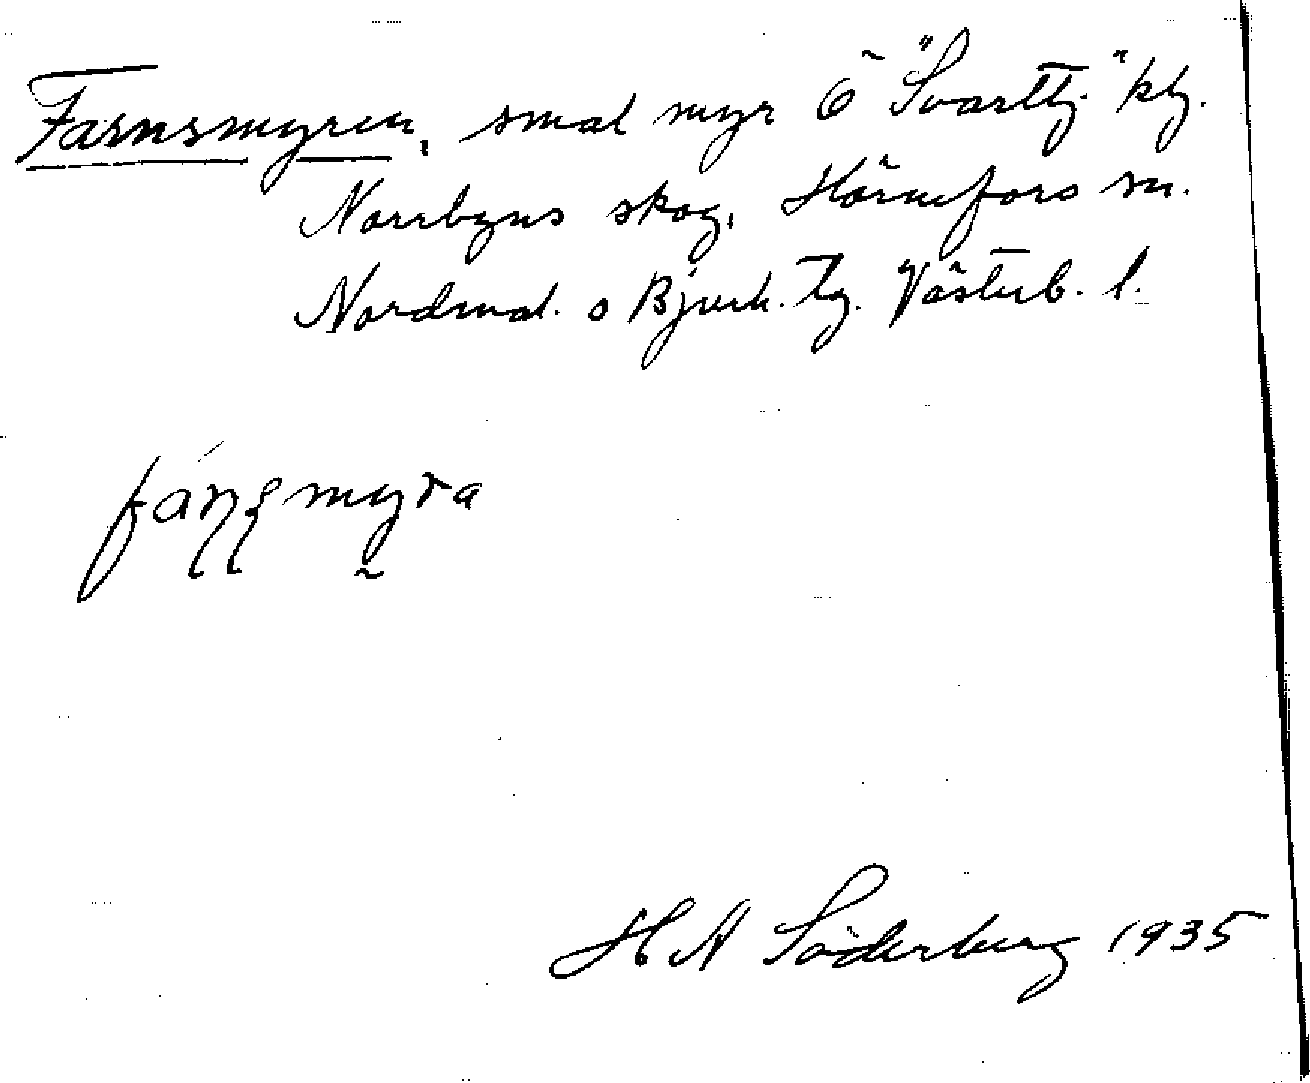 Farnsmyren, smal myr Ö "Svarttj." kbg.
Norrbyns skog, Hörnefors sn.
Nordmal. o Bjurh. tg. Västerb. l.
fáɳʂmyra
H A Söderberg 1935